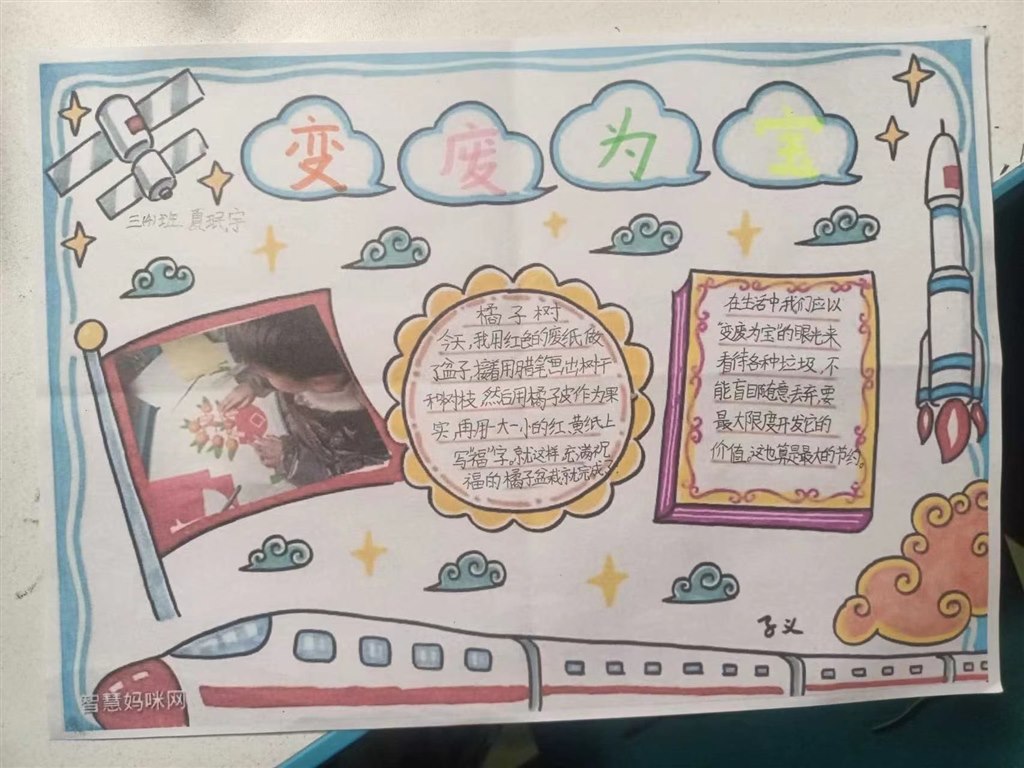 变废为宝
三(1)班 夏珉宇
橘子树
今天,我用红色的废纸做
了盆子,接着用用蜡笔画出树干
和树枝,然后用橘子皮作为果
实,再用一大一小的红、黄纸上
写"福"字。就这样,充满祝
福的橘子盆栽就完成了.
在生活中我们应以
"变废为宝"的眼光来
看待各种垃圾,不
能盲目随意丢弃,要
最大限度开发它的
价值。这也算是最大的节约。
子义
智慧妈咪网